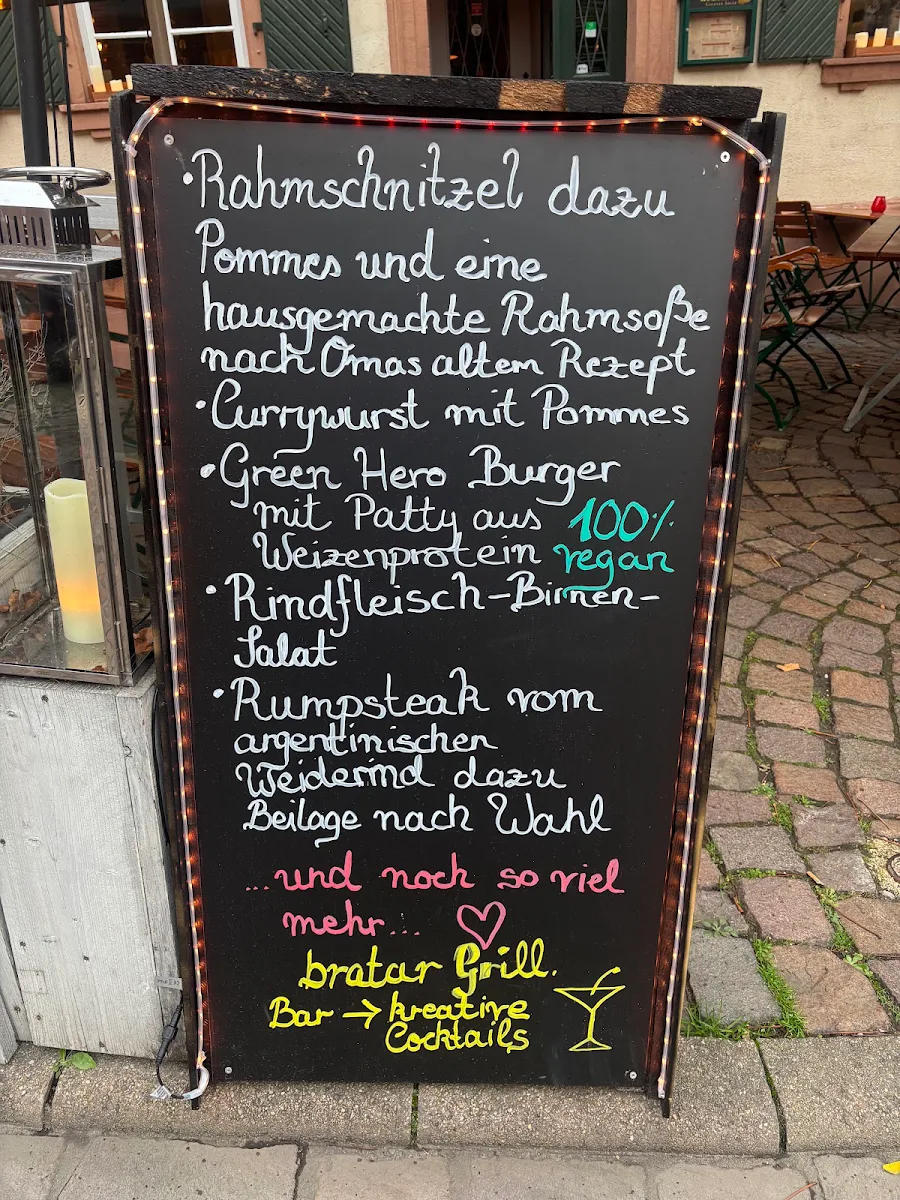 • Rahmschnitzel dazu
Pommes und eine
hausgemachte Rahmsoße
nach Omas altem Rezept
• Currywurst mit Pommes
• Green Hero Burger
mit Patty aus 100%
Weizenprotein vegan
• Rindfleisch-Birnen-
Salat
• Rumpsteak vom
argentinischen
Weiderind dazu
Beilage nach Wahl
...und noch so viel
mehr...
bratar Grill.
Bar → kreative
Cocktails